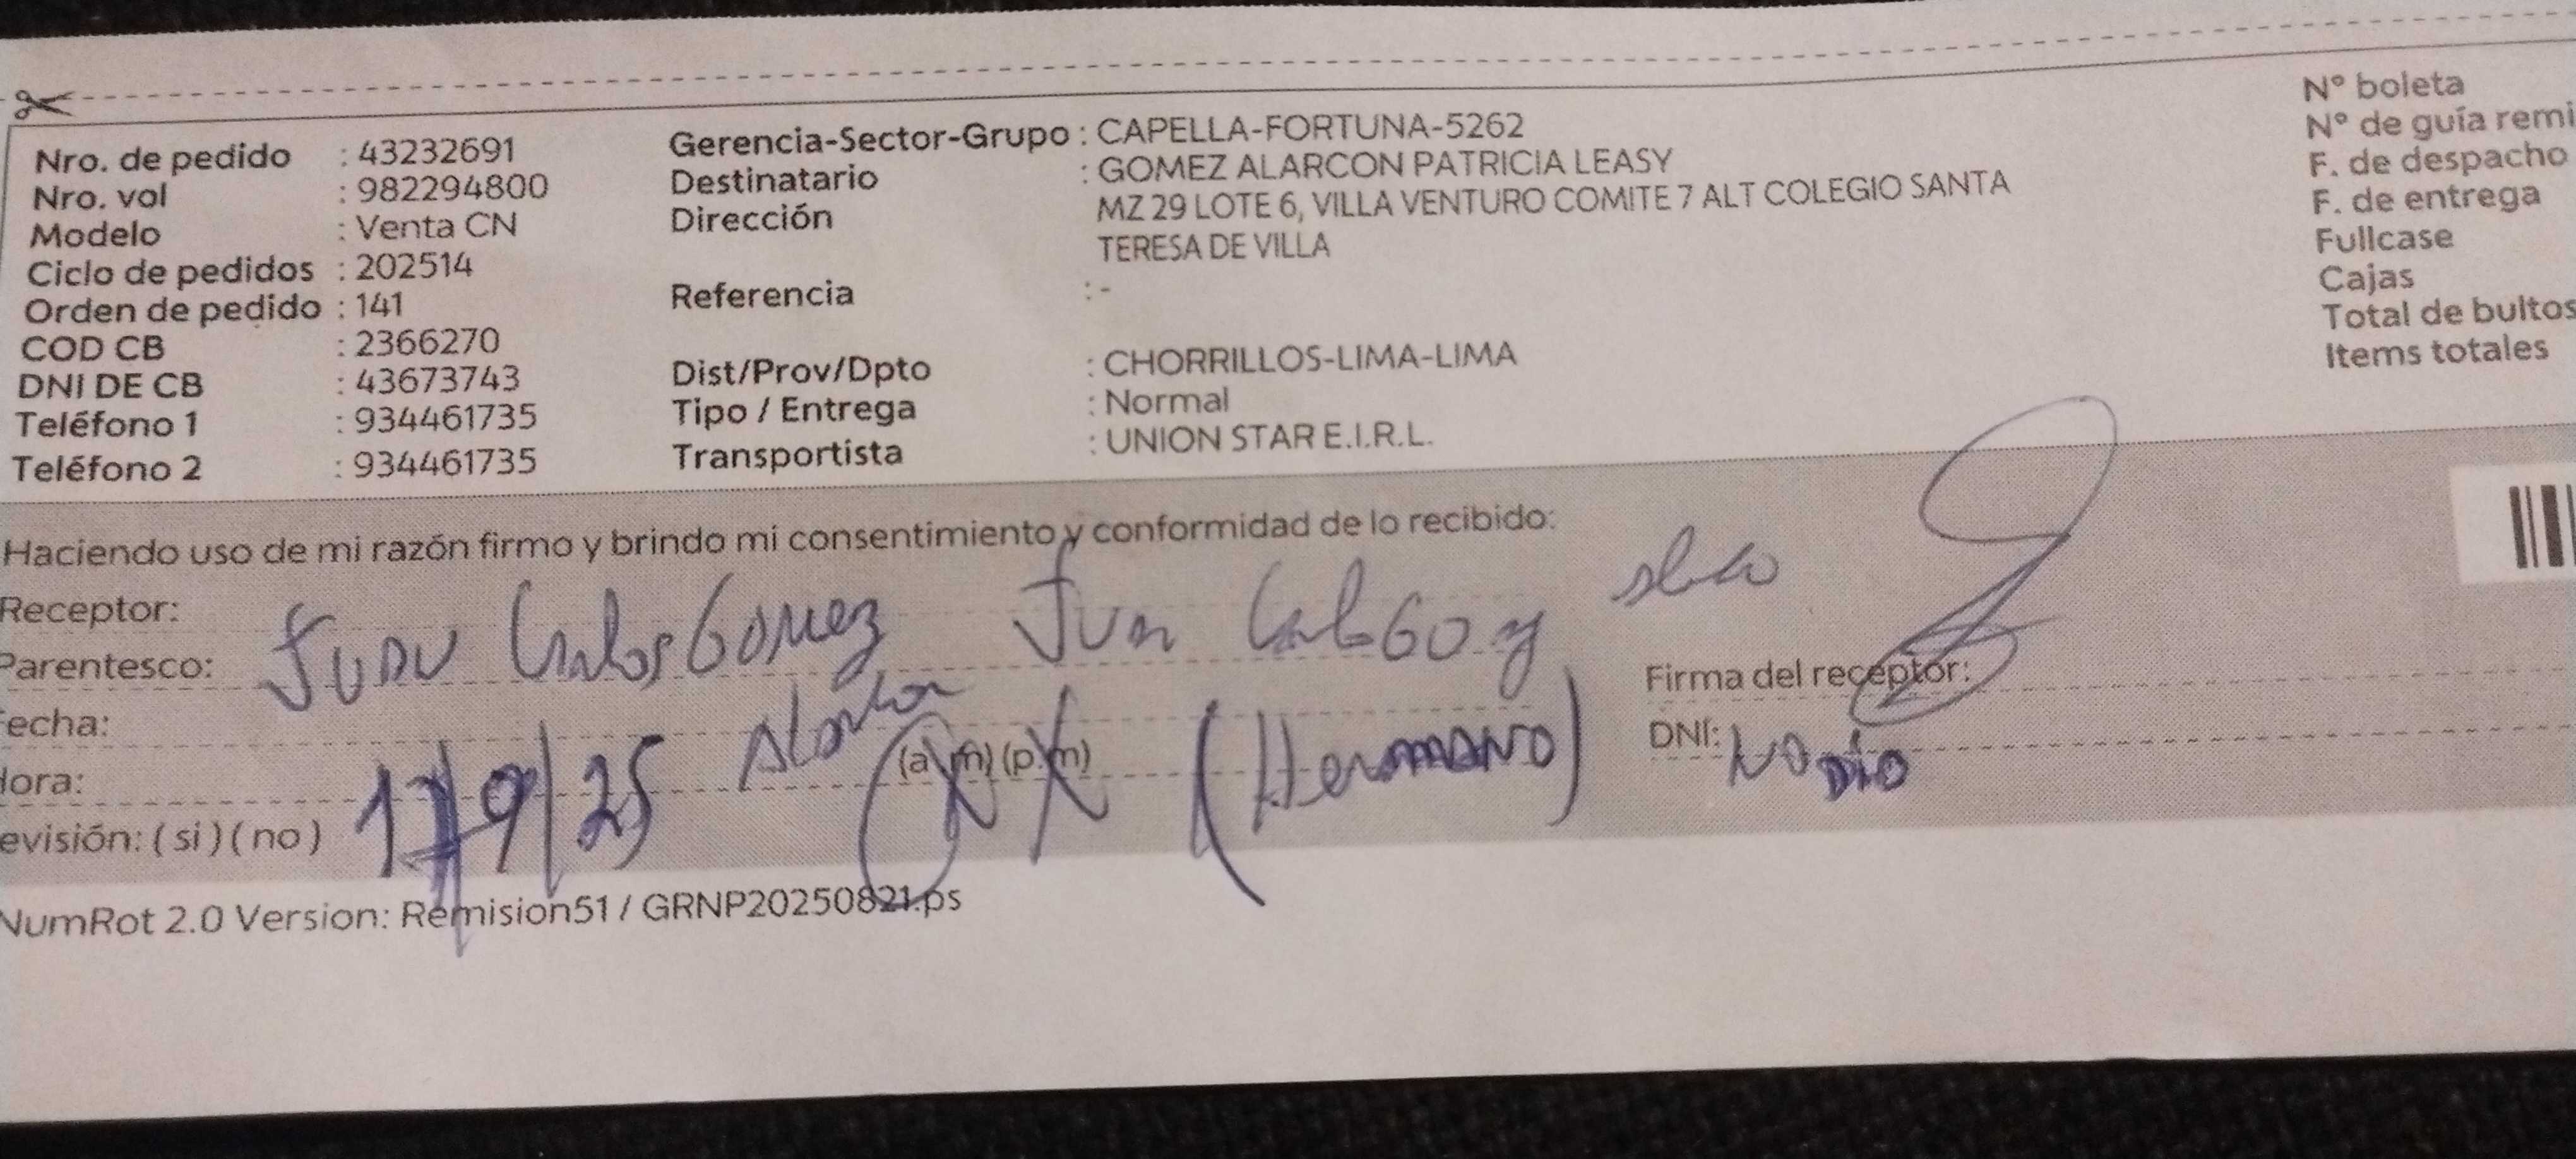 Nro. de pedido : 43232691
Nro. vol : 982294800
Modelo : Venta CN
Ciclo de pedidos : 202514
Orden de pedido : 141
COD CB : 2366270
DNI DE CB : 43673743
Teléfono 1 : 934461735
Teléfono 2 : 934461735
Gerencia-Sector-Grupo : CAPELLA-FORTUNA-5262
Destinatario : GOMEZ ALARCON PATRICIA LEASY
Dirección MZ 29 LOTE 6, VILLA VENTURO COMITE 7 ALT COLEGIO SANTA
TERESA DE VILLA
Referencia : -
Dist/Prov/Dpto : CHORRILLOS-LIMA-LIMA
Tipo / Entrega : Normal
Transportista : UNION STAR E.I.R.L.
N° boleta
N° de guía remi
F. de despacho
F. de entrega
Fullcase
Cajas
Total de bultos
Items totales
Haciendo uso de mi razón firmo y brindo mi consentimiento y conformidad de lo recibido:
Receptor:
Juan Carlos Gomez Juan
Parentesco:
Firma del receptor:
echa:
(a.m) (p.m) (Hermano)
DNI: No dio
ora:
17/9/25
evisión: ( si ) ( no )
NumRot 2.0 Version: Remision51 / GRNP20250821.ps